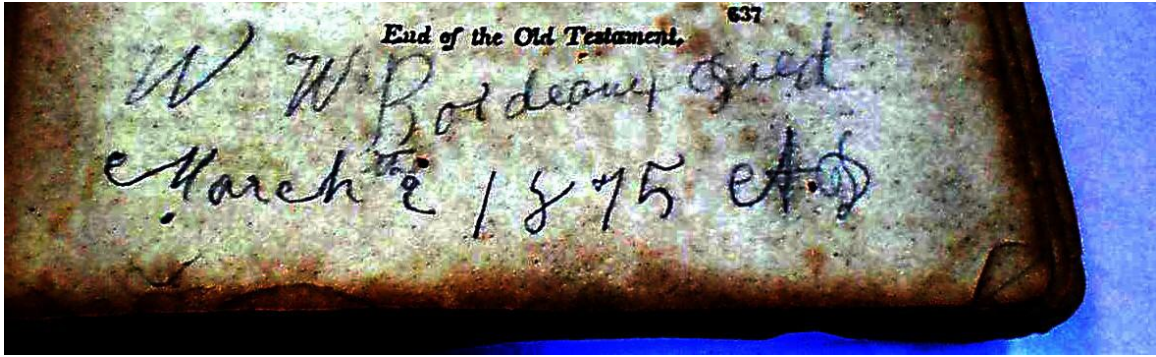 637
End of the Old Testament.
W W Bordeaux Died
March th 2 1875 A.D